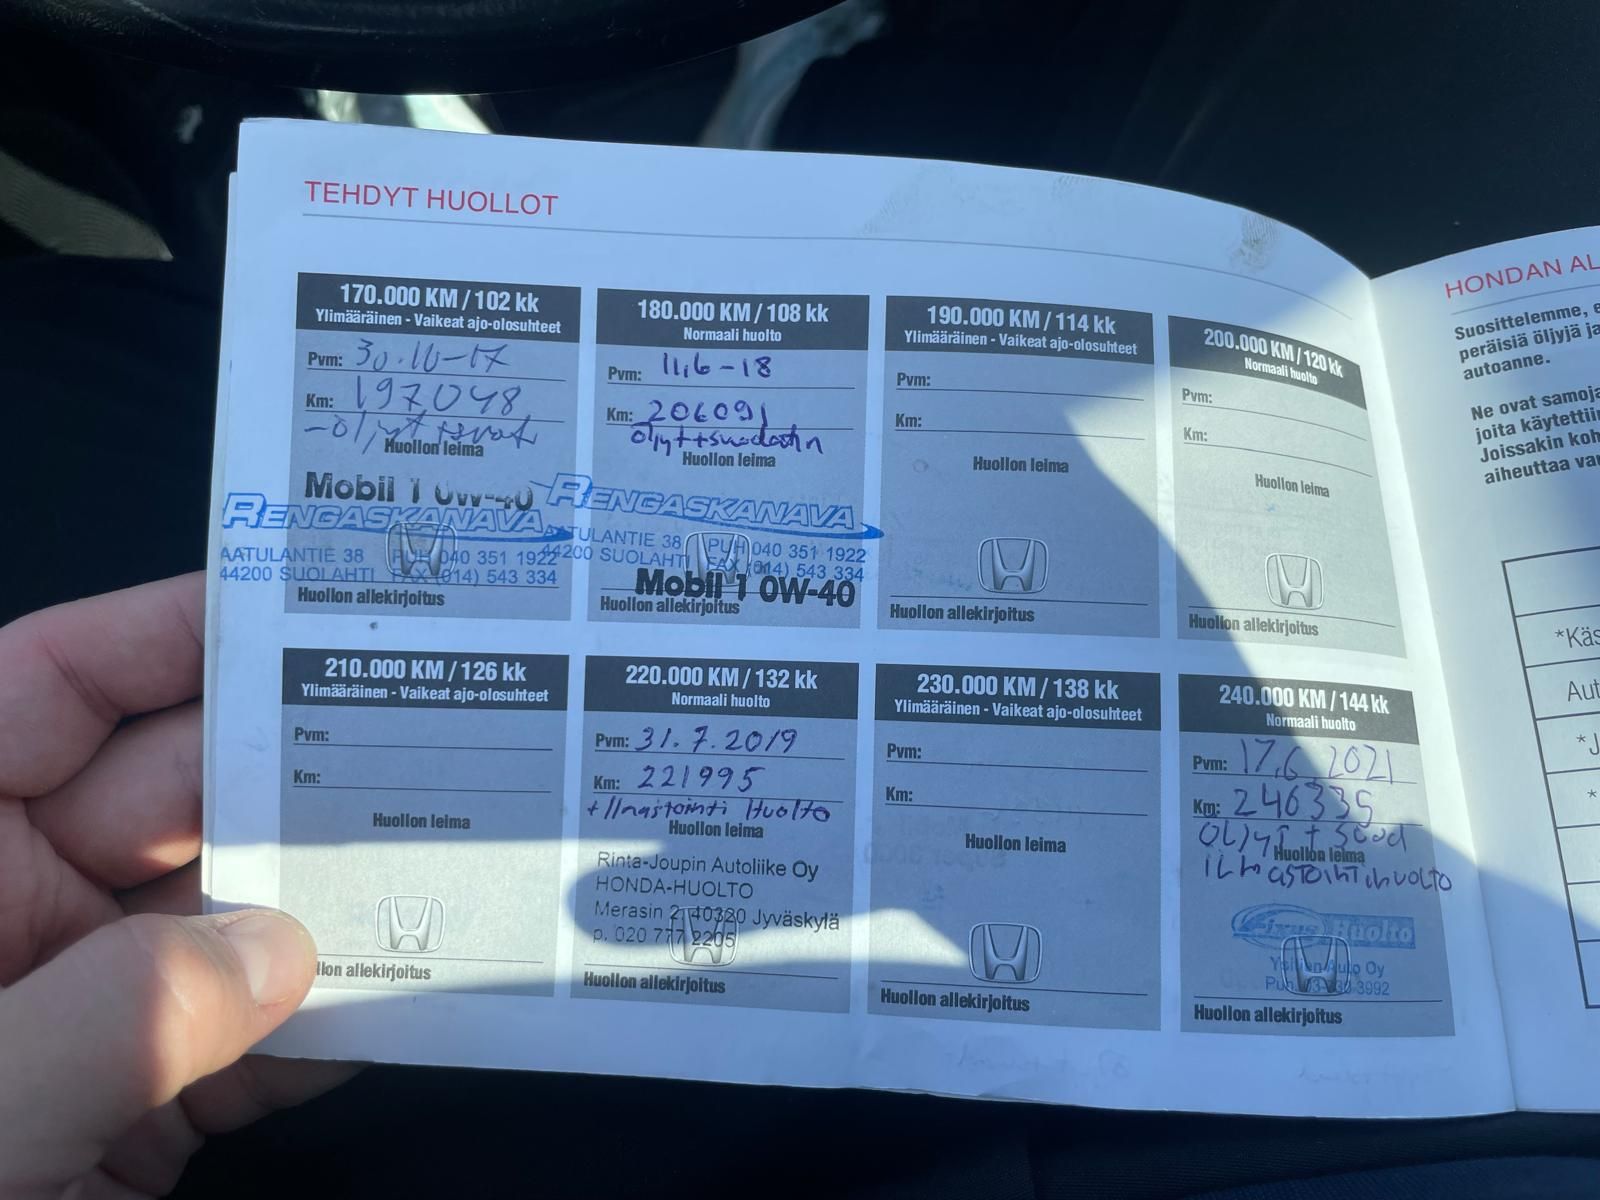 TEHDYT HUOLLOT
170.000 KM / 102 kk
Ylimääräinen - Vaikeat ajo-olosuhteet
Pvm: 30.10-17
Km: 197048
-öljyt
Huollon leima
Mobil 1 0W-40
RENGASKANAVA
AATULANTIE 38 PUH 040 351 1922
44200 SUOLAHTI FAX (014) 543 334
Huollon allekirjoitus
180.000 KM / 108 kk
Normaali huolto
Pvm: 11,6-18
Km: 206091
öljyt+suodatin
Huollon leima
RENGASKANAVA
AATULANTIE 38 PUH 040 351 1922
44200 SUOLAHTI FAX (014) 543 334
Mobil 1 0W-40
Huollon allekirjoitus
190.000 KM / 114 kk
Ylimääräinen - Vaikeat ajo-olosuhteet
Pvm:
Km:
Huollon leima
Huollon allekirjoitus
200.000 KM / 120 kk
Normaali huolto
Pvm:
Km:
Huollon leima
Huollon allekirjoitus
210.000 KM / 126 kk
Ylimääräinen - Vaikeat ajo-olosuhteet
Pvm:
Km:
Huollon leima
llon allekirjoitus
220.000 KM / 132 kk
Normaali huolto
Pvm: 31.7.2019
Km: 221995
+ Ilmastointi Huolto
Huollon leima
Rinta-Joupin Autoliike Oy
HONDA-HUOLTO
Merasin 2, 40320 Jyväskylä
p. 020 777 2205
Huollon allekirjoitus
230.000 KM / 138 kk
Ylimääräinen - Vaikeat ajo-olosuhteet
Pvm:
Km:
Huollon leima
Huollon allekirjoitus
240.000 KM / 144 kk
Normaali huolto
Pvm: 17.6.2021
Km: 246335
Öljyt + Suod
Huollon leima
ilmastointihuolto
Fixus Huolto
Auto Oy
Huollon allekirjoitus
HONDAN AL
Suosittelemme, e
peräisiä öljyjä ja
autoanne.
Ne ovat samoja
joita käytettiin
Joissakin koh
aiheuttaa va
*Käs
Aut
*J
*